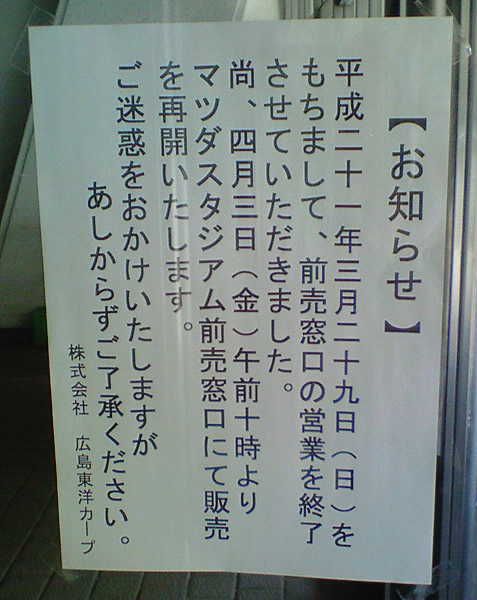 【お知らせ】
平成二十一年三月二十九日（日）を
もちまして、前売窓口の営業を終了
させていただきました。
尚、四月三日（金）午前十時より
マツダスタジアム前売窓口にて販売
を再開いたします。
ご迷惑をおかけいたしますが
あしからずご了承ください。
株式会社　広島東洋カープ